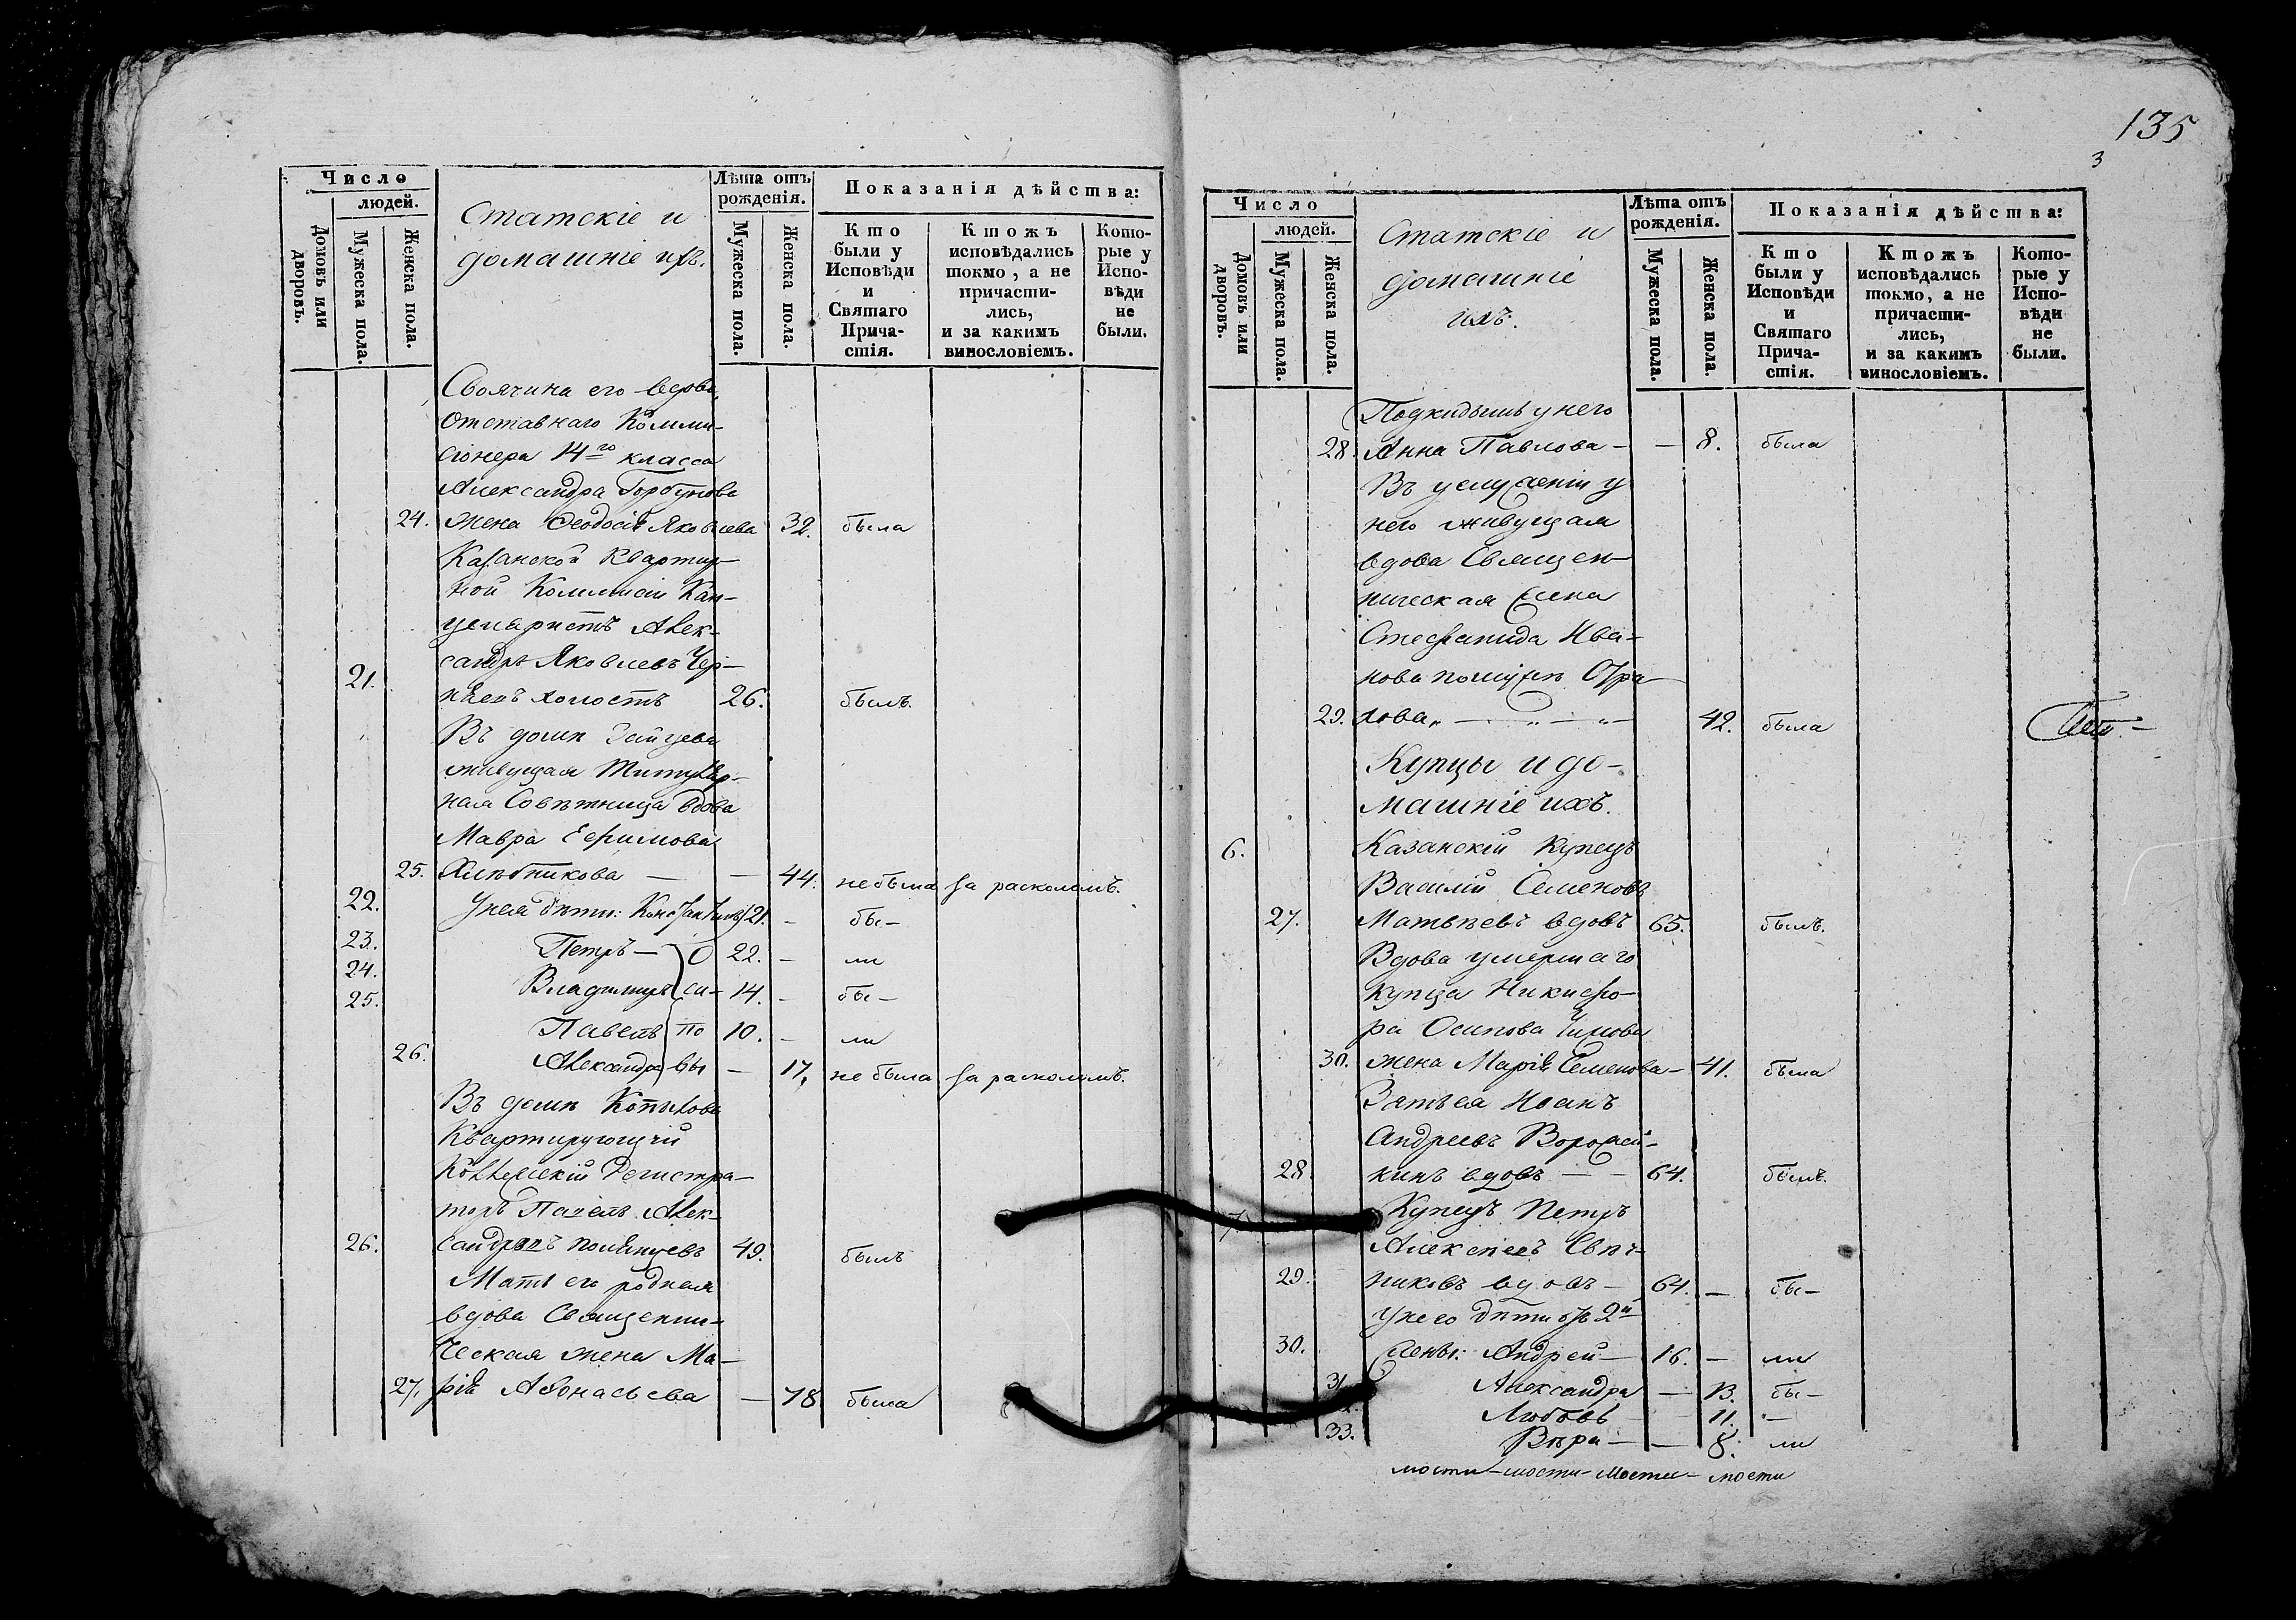 135
3
Число
людей.
Домовъ или дворовъ.
Мужеска пола.
Женска пола.
Статскіе и
домашніе ихъ.
Лѣта отъ
рожденія.
Мужеска пола.
Женска пола.
Показанія дѣйства:
Кто
были у
Исповѣди
и
Святаго
Прича-
стія.
Ктожъ
исповѣдались
токмо, а не
причасти-
лись,
и за какимъ
винословіемъ.
Кото-
рые у
Испо-
вѣди
не
были.
Своячина его вдова,
отставнаго Комми-
сіонера 14го класса
Александра Горбунова
24. жена Ѳеодосія Яковлева 32. была
Казанской Квартир-
ной Коммисіи Кан-
целаристъ Алек-
сандръ Яковлевъ Чер-
21. холостъ 26. былъ.
Въ домѣ Зайцева
живущая Титуляр-
ная Совѣтница вдова
Мавра Ефимова
25. Хлѣбникова — — 44. не была за расколомъ.
22. У нея дѣти: Константинъ 21. - бы-
23. Петръ — О 22. - ли
24. Владимиръ си- 14. - бы-
25. Павелъ по 10. - ли
26. Александра вы — 17. не была за расколомъ.
Въ домѣ Копылова
Квартирующій
Коллежскій Регистра-
торъ Павелъ Алек-
26. сандровъ 49. былъ
Мать его родная
вдова Священни-
ческая жена Ма-
27. рія Аѳонасьева — 78 была
Число
людей.
Домовъ или дворовъ.
Мужеска пола.
Женска пола.
Статскіе и
домашніе
ихъ.
Лѣта отъ
рожденія.
Мужеска пола.
Женска пола.
Показанія дѣйства:
Кто
были у
Исповѣди
и
Святаго
Прича-
стія.
Ктожъ
исповѣдались
токмо, а не
причасти-
лись,
и за какимъ
винословіемъ.
Кото-
рые у
Испо-
вѣди
не
были.
Подкидышъ у него
28. Анна Павлова — — 8. была
Въ услуженіи у
него живущая
вдова Священ-
ническая жена
Стефанида Ива-
нова
29. 42. была
Купцы и до-
машніе ихъ.
6. Казанскій Купецъ
Василій Семеновъ
27. Матвѣевъ вдовъ 65. былъ.
Вдова умершаго
купца Никифо-
ра Осипова
30. жена Марія Семенова — 41. была
Зять ея Иванъ
Андреевъ Ворожей-
28. кинъ вдовъ — — 64. былъ.
7. Купецъ Петръ
Алексѣевъ Свѣч-
29. никовъ вдовъ — 64. — бы-
У него дѣти отъ 2й
30. жены: Андрей — 16. — ли
31. Александра — 13. бы-
Любовь — 11. -
33. Вѣра — — 8. ли
мости - мости - мости - мости